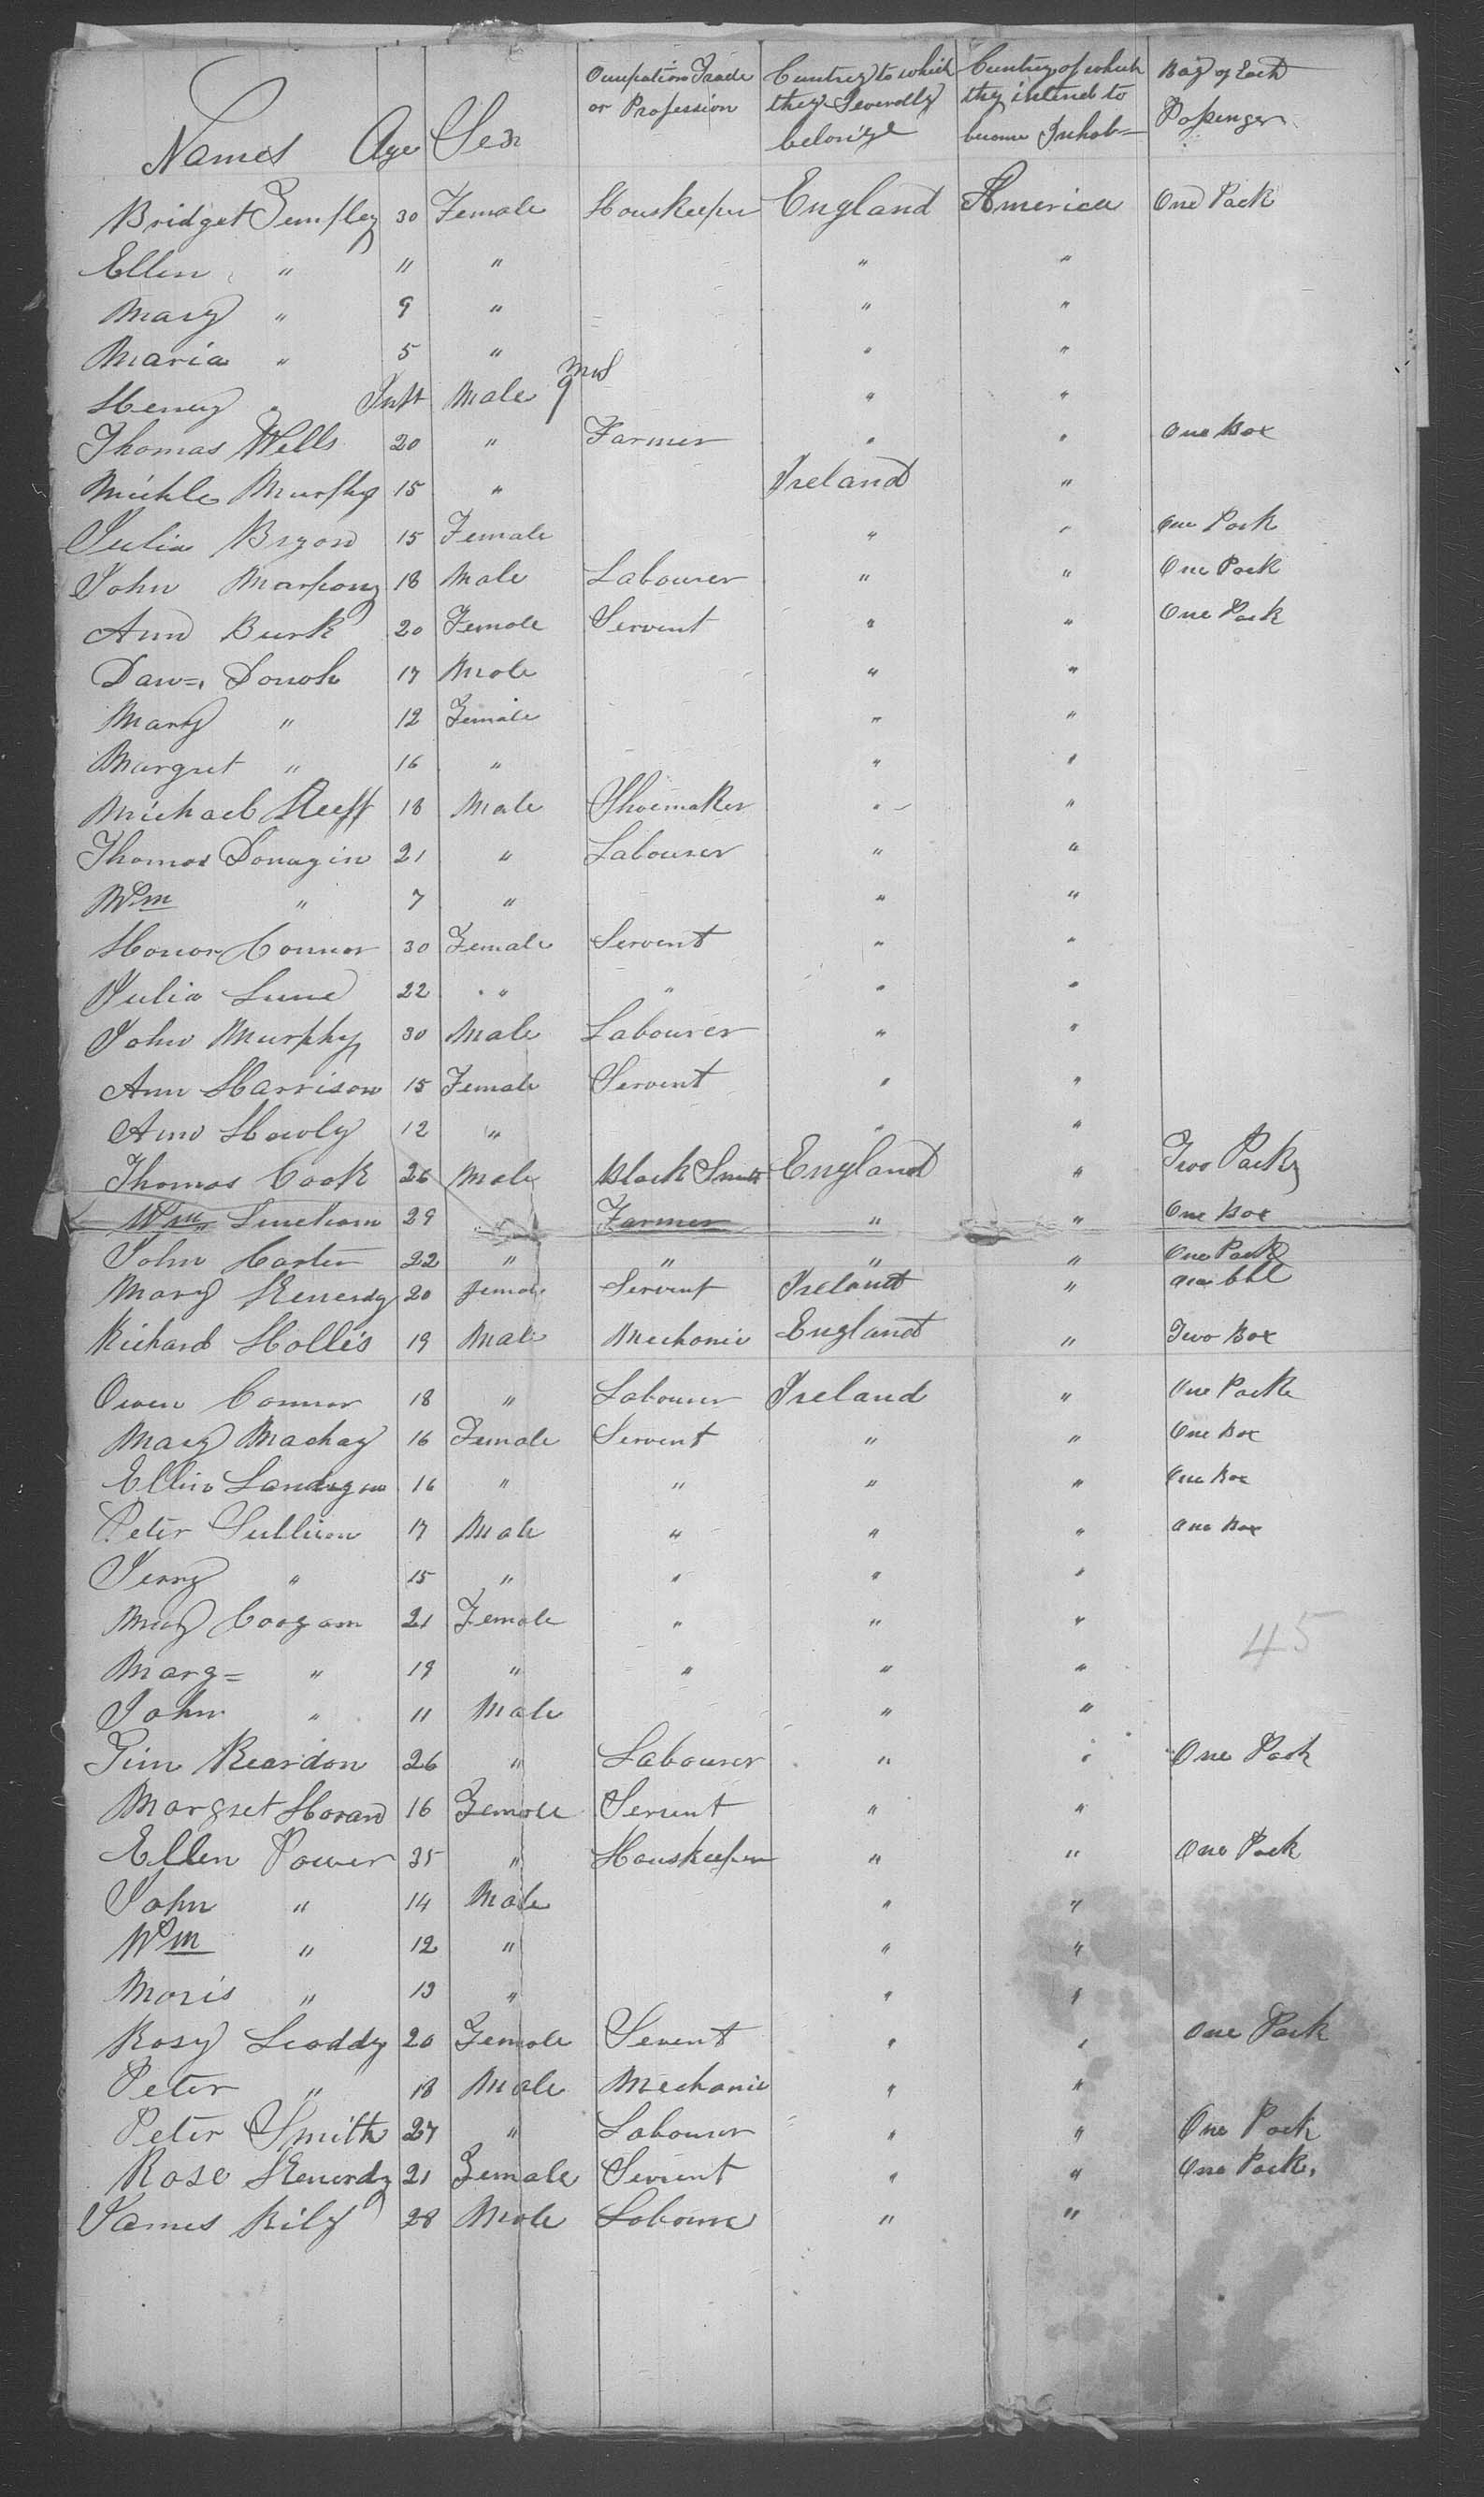 Names Age Sex Occupation Trade or Profession Cuntrey to which they Severolly belonge Cuntrey of which they intend to become Inhab= Bag of Each Passenger
Bridget 30 Female Houskeeper England America One Pack
Ellen " 11 " " "
Mary " 9 " " "
Maria " 5 " " "
Henry " Inft Male 9 mos " "
Thomas Wells 20 " Farmer " " One Box
Michle Murphy 15 " Ireland "
Julia Bryan 15 Female " " One Pack
John 18 Male Labourer " " One Pack
Ann Burk 20 Female Servent " " One Pack
Donoh 17 Male " "
Mary " 12 Female " "
Margret " 16 " " "
Michael Keeff 18 Male Shoemaker " "
Thomas Donagin 21 " Labourer " "
Wm " 7 " " "
Honor Connor 30 Female Servent " "
Julia 22 " " " "
John Murphy 30 Male Labourer " "
Ann Harrison 15 Female Servent " "
Ann Howly 12 " " "
Thomas Cook 26 Male Black Smith England " Two Packs
Wm 29 Farmer " " One Box
John Carter 22 " " " " One Pack
Mary Kenerdy 20 Female Servent Ireland " One bbl
Richard Hollis 19 Male Mechanic England " Two Box
Owen Connor 18 " Labourer Ireland " One Pack
Mary Mackay 16 Female Servent " " One Box
Ellin 16 " " " " One Box
Peter Sullivan 17 Male " " " One Box
Jerry " 15 " " " "
Coogam 21 Female " " "
Marg= " 19 " " " "
45
John " 11 Male " "
Jim Reardon 26 " Labourer " " One Pack
Margret Horan 16 Female Servent " "
Ellen Power 35 " Houskeeper " " One Pack
John " 14 Male " "
Wm " 12 " " "
Moris " 13 " " "
Rosy Leoddy 20 Female Servent " " One Pack
Peter " 18 Male Mechanic " "
Peter Smith 27 " Labourer " " One Pack
Rose Kenerdy 21 Female Servent " " One Pack
James Rily 28 Male Labourer " "